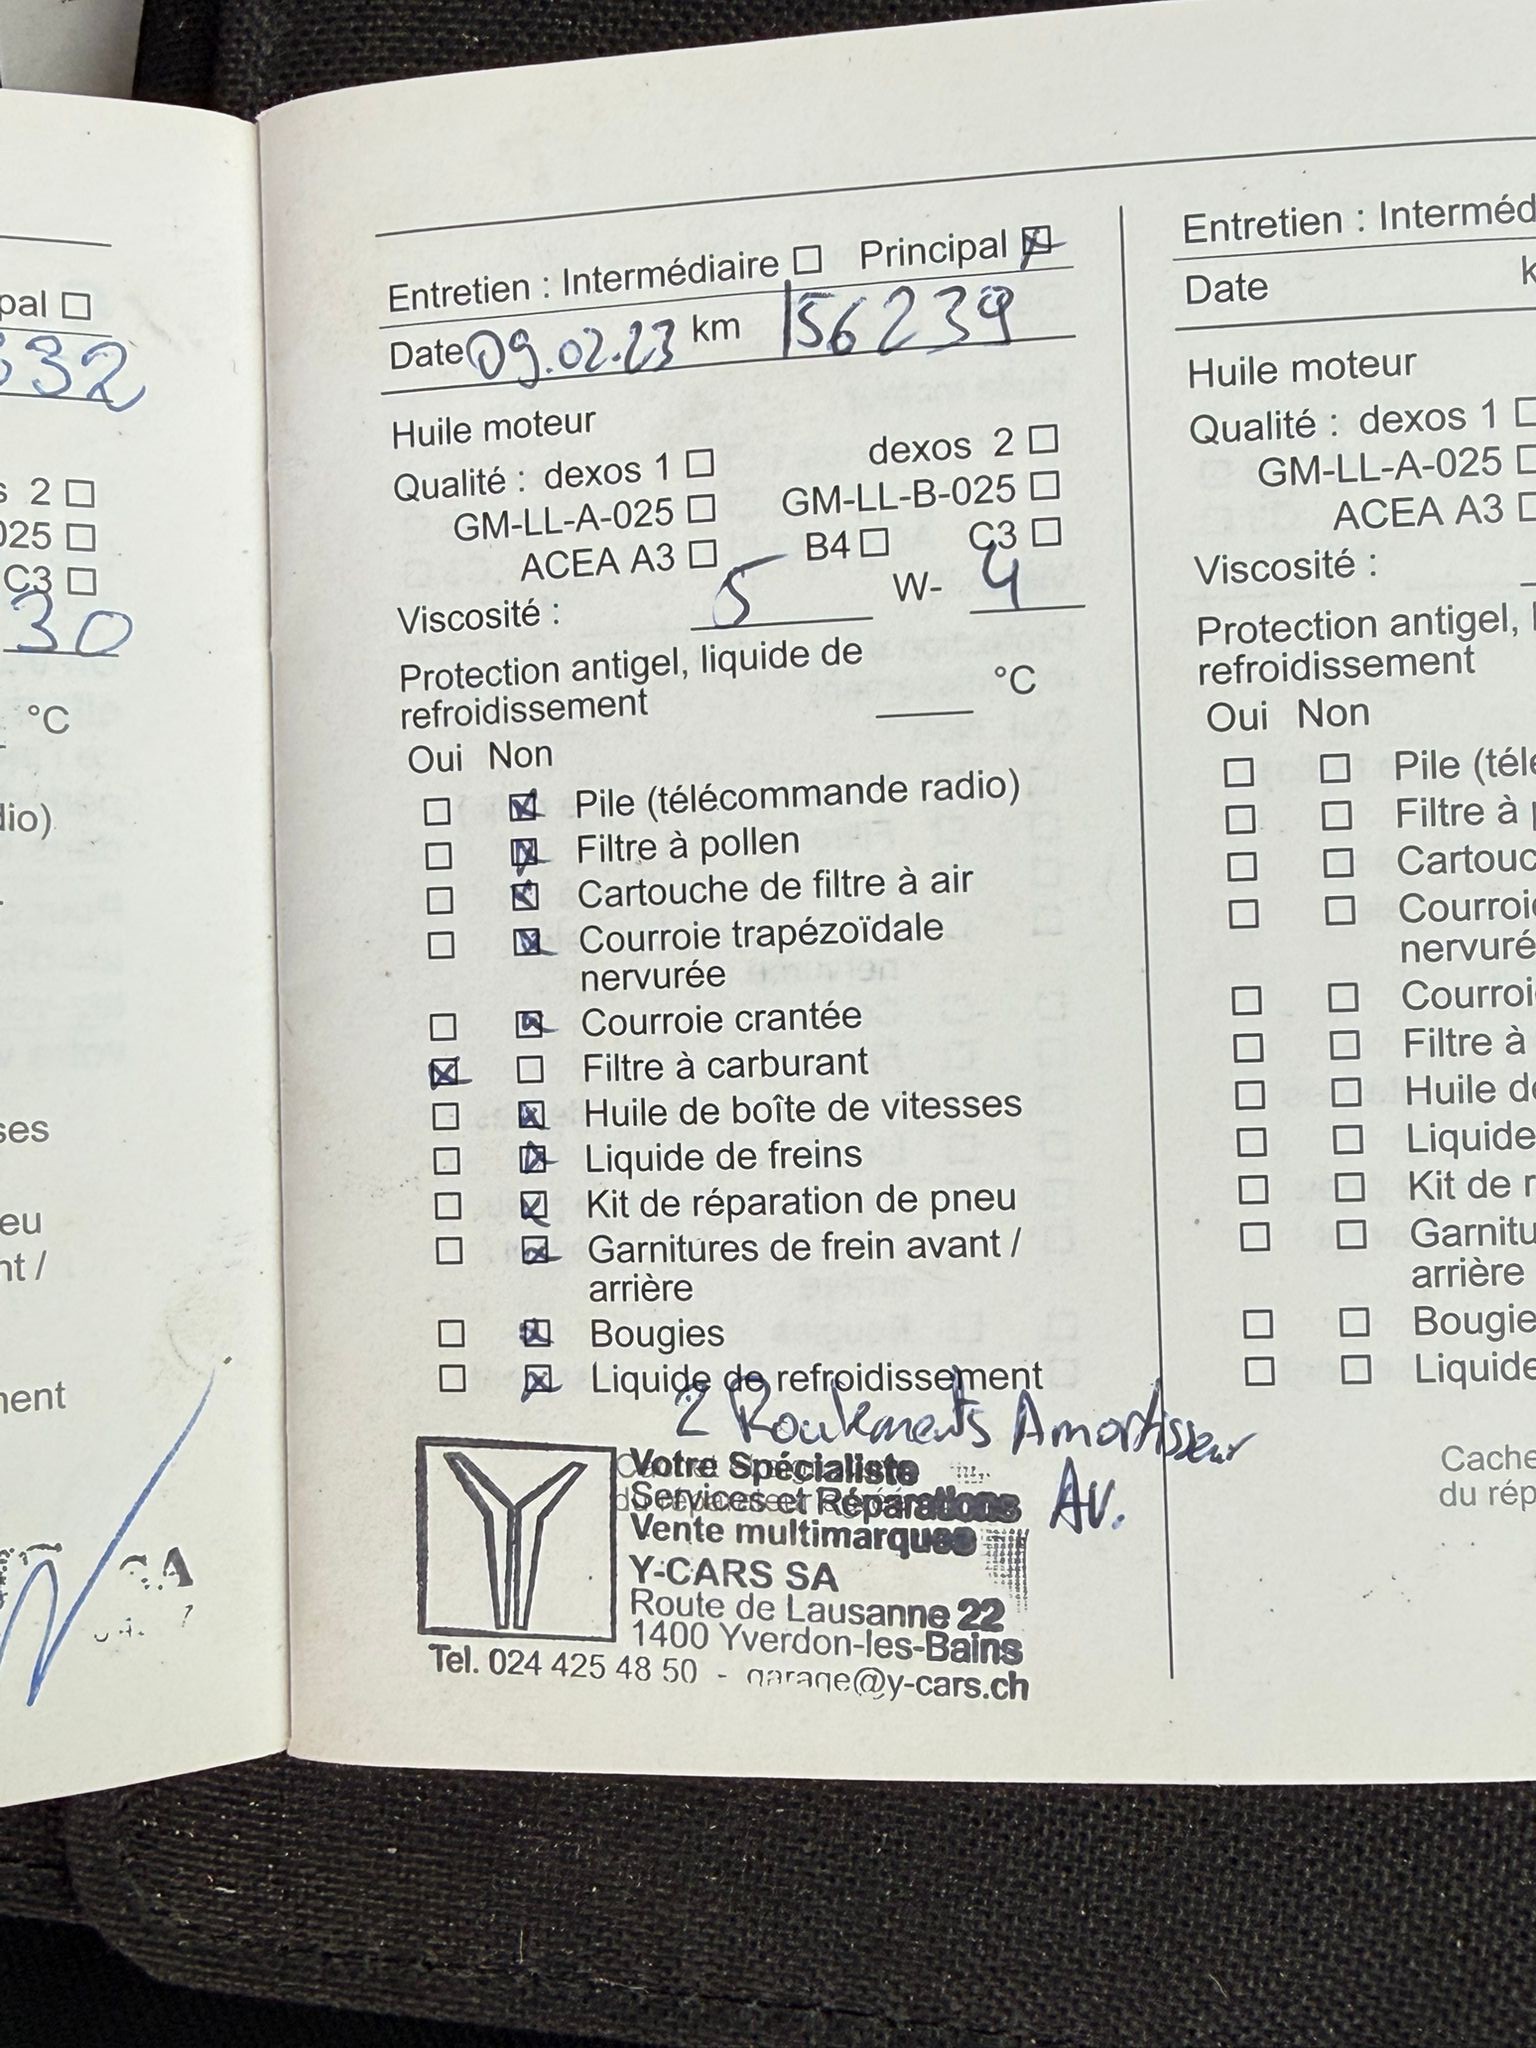 pal ☐
332
s 2 ☐
025 ☐
C3 ☐
30
°C
dio)
ses
eu
nt /
ment
Entretien : Intermédiaire ☐ Principal ☒
Date 09.02.23 km 156239
Huile moteur
Qualité : dexos 1 ☐ dexos 2 ☐
GM-LL-A-025 ☐ GM-LL-B-025 ☐
ACEA A3 ☐ B4 ☐ C3 ☐
Viscosité : 5 W- 4
Protection antigel, liquide de
refroidissement °C
Oui Non
☐ ☒ Pile (télécommande radio)
☐ ☒ Filtre à pollen
☐ ☒ Cartouche de filtre à air
☐ ☒ Courroie trapézoïdale
nervurée
☐ ☒ Courroie crantée
☒ ☐ Filtre à carburant
☐ ☒ Huile de boîte de vitesses
☐ ☒ Liquide de freins
☐ ☒ Kit de réparation de pneu
☐ ☒ Garnitures de frein avant /
arrière
☐ ☒ Bougies
☐ ☒ Liquide de refroidissement
2 Roulements Amortisseur
AV.
Votre Spécialiste
Services et Réparations
Vente multimarques
Y-CARS SA
Route de Lausanne 22
1400 Yverdon-les-Bains
Tel. 024 425 48 50 - garage@y-cars.ch
Entretien : Interméd
Date k
Huile moteur
Qualité : dexos 1 ☐
GM-LL-A-025 ☐
ACEA A3 ☐
Viscosité :
Protection antigel, l
refroidissement
Oui Non
☐ ☐ Pile (télé
☐ ☐ Filtre à p
☐ ☐ Cartouc
☐ ☐ Courroie
nervuré
☐ ☐ Courroi
☐ ☐ Filtre à
☐ ☐ Huile de
☐ ☐ Liquide
☐ ☐ Kit de r
☐ ☐ Garnitu
arrière
☐ ☐ Bougie
☐ ☐ Liquide
Cache
du rép